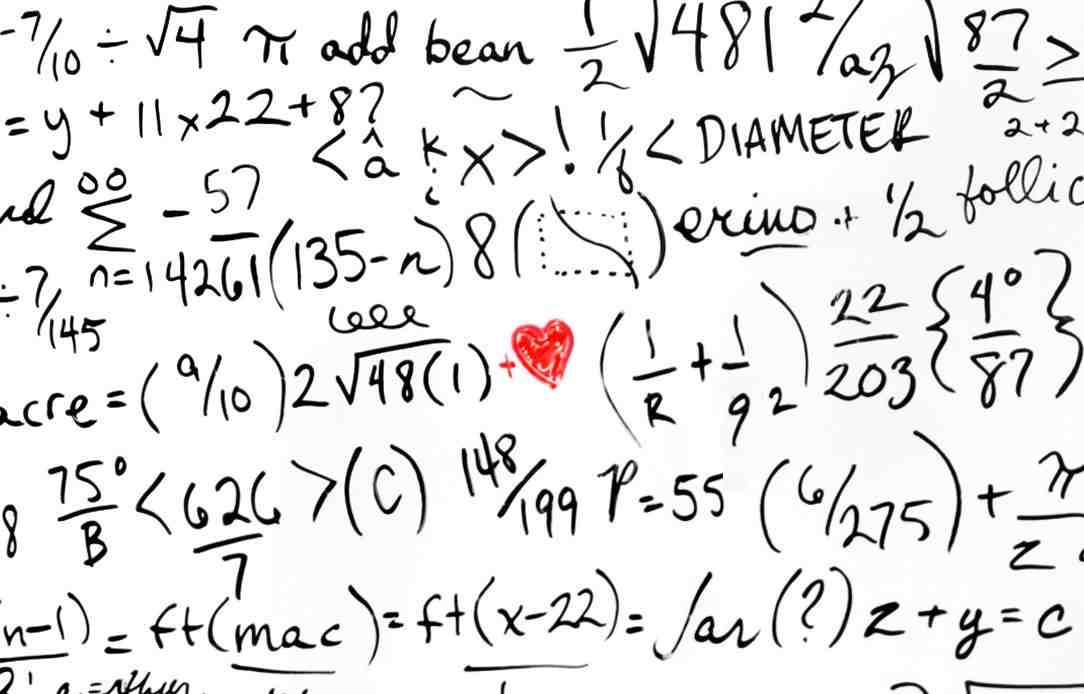 -7/10 ÷ √4 π add bean 1/2 √481 2/az √ 87/2 ≥
= y + 11 x 22 + 8? ~ < â k x > ! 1/6 < DIAMETER 2+2
∞ Σ n=1 - 57/4261 (135-n) 8 ( ) erino .+ 1/2 follic
÷ 7/145
acre = (a/10) 2 √48(1) + ♥ (1/R + 1/9 2) 22/203 {4°/87}
8 75°/B < 626/7 > (C) 148/199 P=55 (6/275) + π/z
(n-1) = ft(mac) = ft(x-22) = far(?) z + y = c